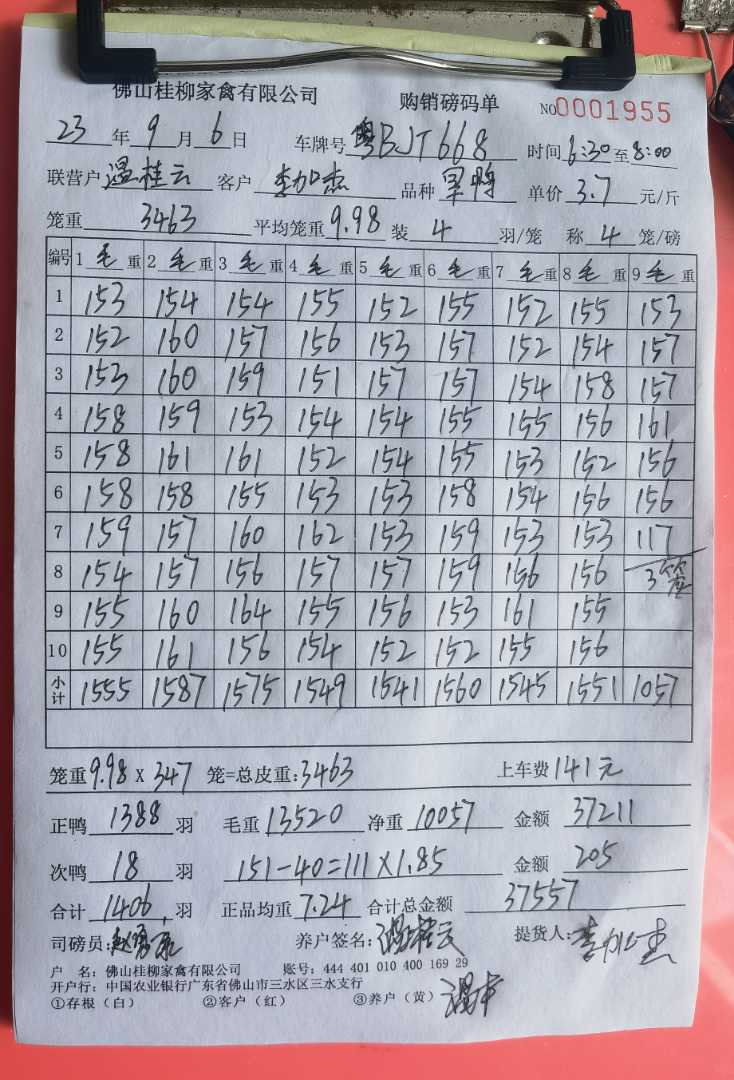 佛山桂柳家禽有限公司 购销磅码单 NO0001955
23年9月6日 车牌号粤BJT668 时间6:30至8:00
联营户温桂云 客户李加杰 品种 单价3.7元/斤
笼重3463 平均笼重9.98 装4羽/笼 称4笼/磅
编号 1毛重 2毛重 3毛重 4毛重 5毛重 6毛重 7毛重 8毛重 9毛重
1 153 154 154 155 152 155 152 155 153
2 152 160 157 156 153 157 152 154 157
3 153 160 159 151 157 157 154 158 157
4 158 159 153 154 154 155 155 156 161
5 158 161 161 152 154 155 153 152 156
6 158 158 155 153 153 158 154 156 156
7 159 157 160 162 153 159 153 153 117
8 154 157 156 157 157 159 156 156 3笼
9 155 160 164 155 156 153 161 155
10 155 161 156 154 152 152 155 156
小计 1555 1587 1575 1549 1541 1560 1545 1551 1057
笼重9.98X347笼=总皮重:3463 上车费141元
正鸭1388羽 毛重13520 净重10057 金额37211
次鸭18羽 151-40=111X1.85 金额205
合计1406羽 正品均重7.24 合计总金额37557
司磅员: 养户签名:温桂云 提货人:李加杰
户 名:佛山桂柳家禽有限公司 账号:444 401 010 400 169 29
开户行:中国农业银行广东省佛山市三水区三水支行
①存根(白) ②客户(红) ③养户(黄)